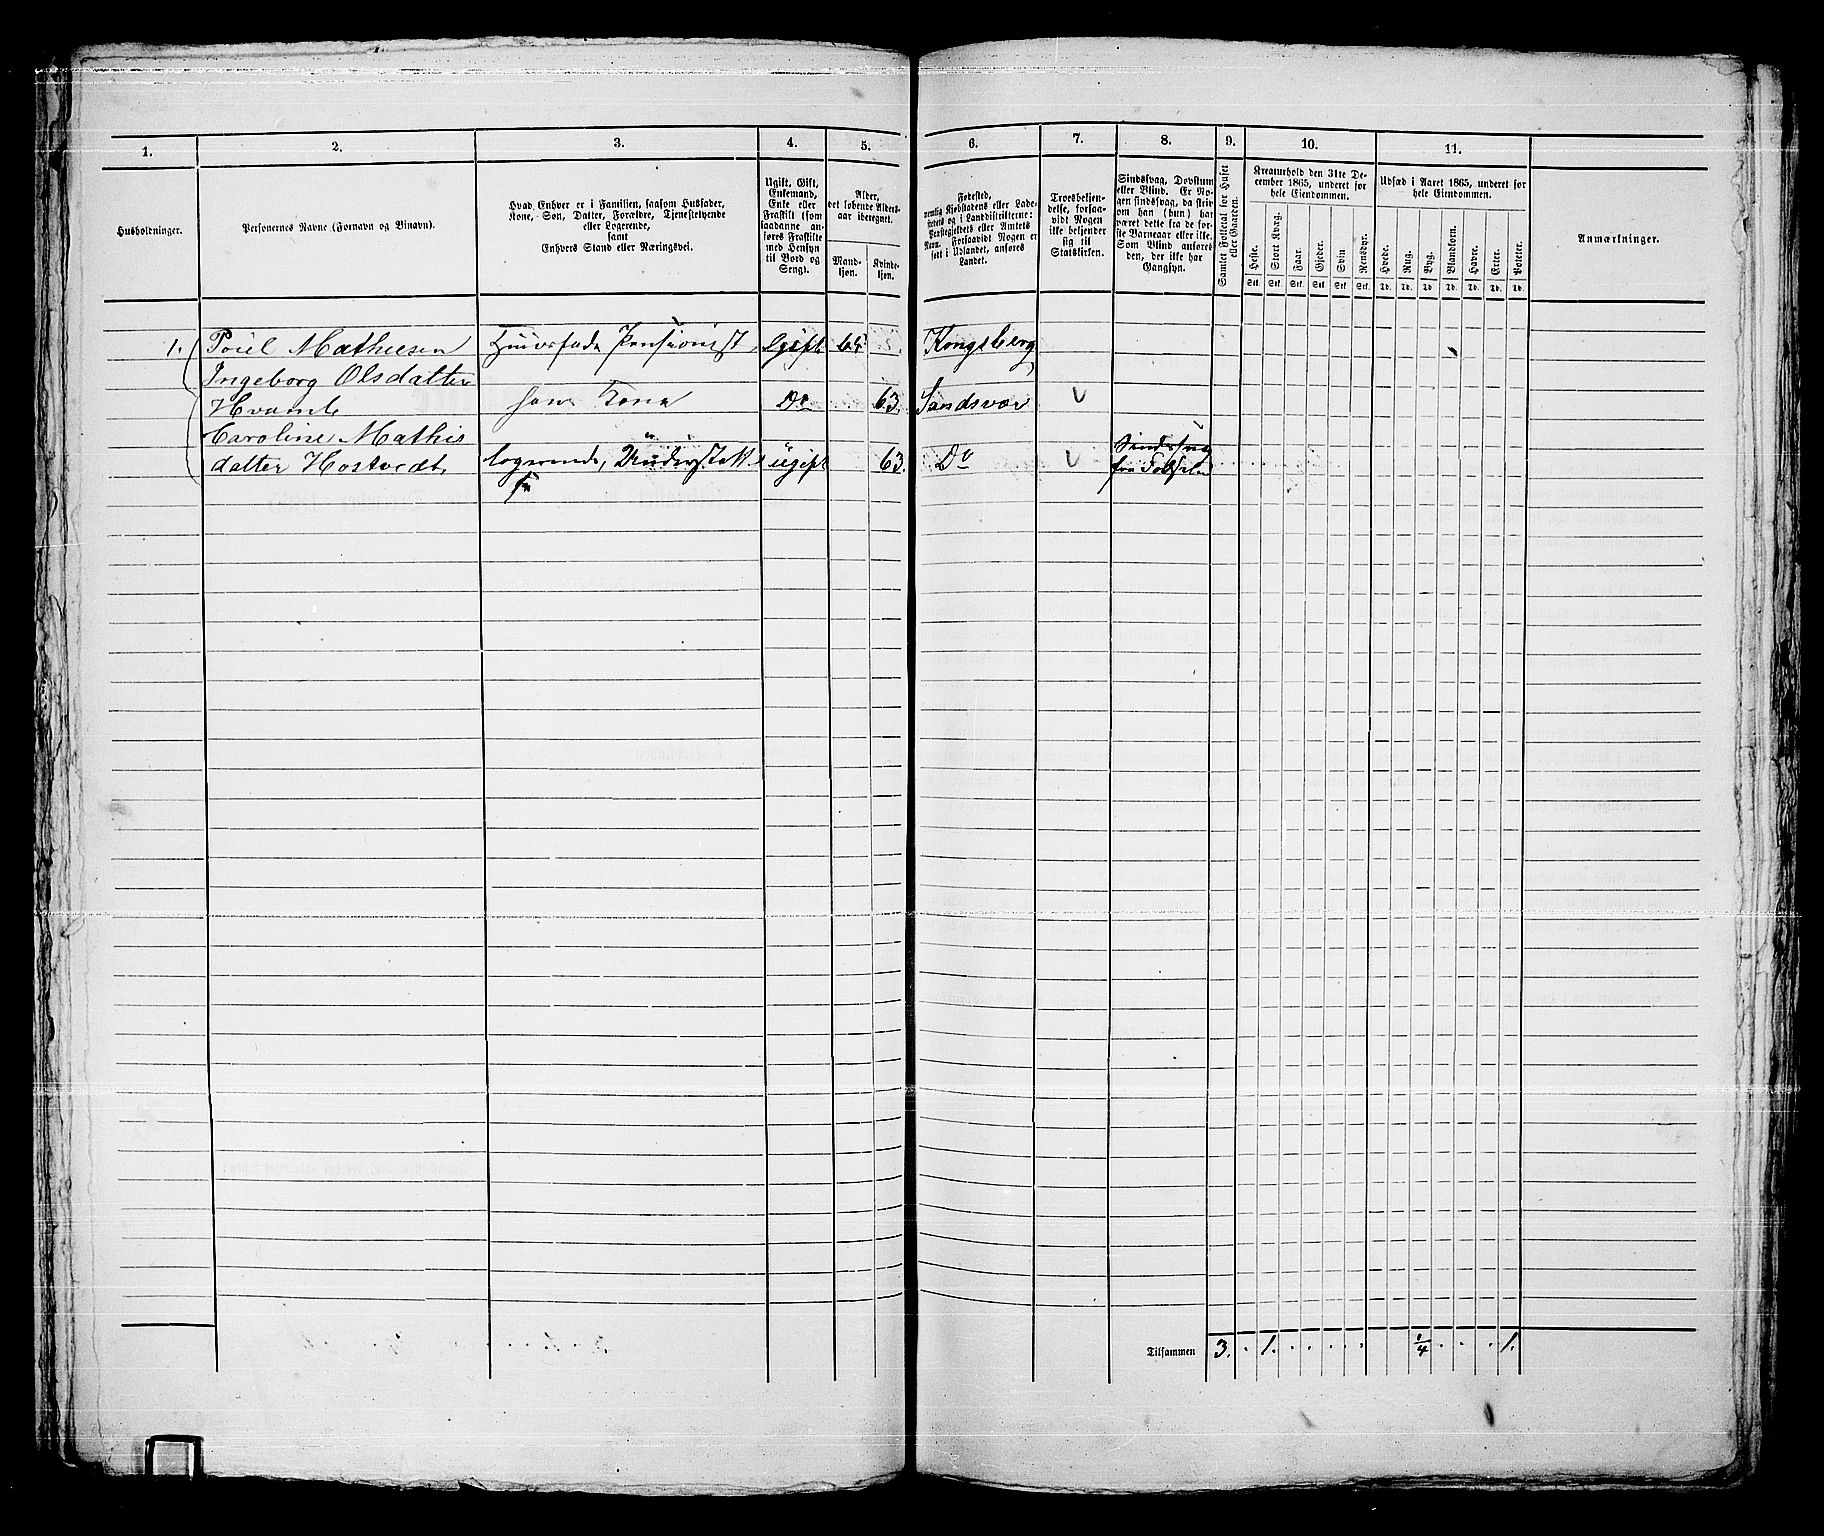 1. 2. 3. 4. 5. 6. 7. 8. 9. 10. 11.
Husholdninger.
Personernes Navne (Fornavn og Binavn).
Hvad Enhver er i Familien, saasom Husfader,
Kone, Søn, Datter, Forældre, Tjenestetyende
eller Logerende,
samt
Enhvers Stand eller Næringsvei.
Ugift, Gift,
Enkemand,
Enke eller
Fraskilt (som
saadanne an-
føres Fraskilte
med Hensyn
til Bord og
Seng).
Alder,
det løbende Alders-
aar iberegnet.
Mand-
kjøn.
Kvinde-
kjøn.
Fødested,
nemlig Kjøbstadens eller Lade-
stedets og i Landdistrikterne:
Præstegjeldets eller Amtets
Navn. Forsaavidt Nogen er
født i Udlandet, anføres
Landet.
Troesbekjen-
delse, forsaa-
vidt Nogen
ikke bekjender
sig til
Statskirken.
Sindssvag, Døvstum
eller Blind. Er No-
gen sindssvag, da skriv
om han (hun) har
været dette fra de før-
ste Barneaar eller ikke.
Som Blind anføres
den, der ikke har
Gangsyn.
Samlet Folketal for Huset
eller Gaarden.
Kreaturhold den 31te De-
cember 1865, underet for
hele Eiendommen.
Heste. Stort Kvæg. Faar. Gjeder. Svin. Rensdyr.
Stk. Stk. Stk. Stk. Stk. Stk.
Udsæd i Aaret 1865, underet for
hele Eiendommen.
Hvede. Rug. Byg. Blandkorn. Havre. Erter. Poteter.
Td. Td. Td. Td. Td. Td. Td.
Anmærkninger.
1. Poul Mathiesen Huusfader Pensionist gift 64 Kongsberg
Ingeborg Olsdatter
Hvamb hans Kone Do 63. Sandsvær
Caroline Mathis
datter Hostvedt logerende, Understøttet ugift 63. Do Sindssvag
fra Fødselen
Tilsammen 3. 1. 1/4 1.